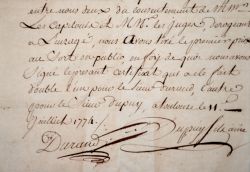 entre nous deux du consentement de M.rs
Les Capitouls et M.rs les Juges, derogeant
a L'usage, nous avons tiré le premier prix
au Sort en public, en foy de quoi nous avons
Signé le present Certificat qui a été fait
double l'un pour le Sieur durand, l'autre
pour le Sieur Dupuy, a toulouse le 11
Juillet 1774
Durand Dupuy fils ainé